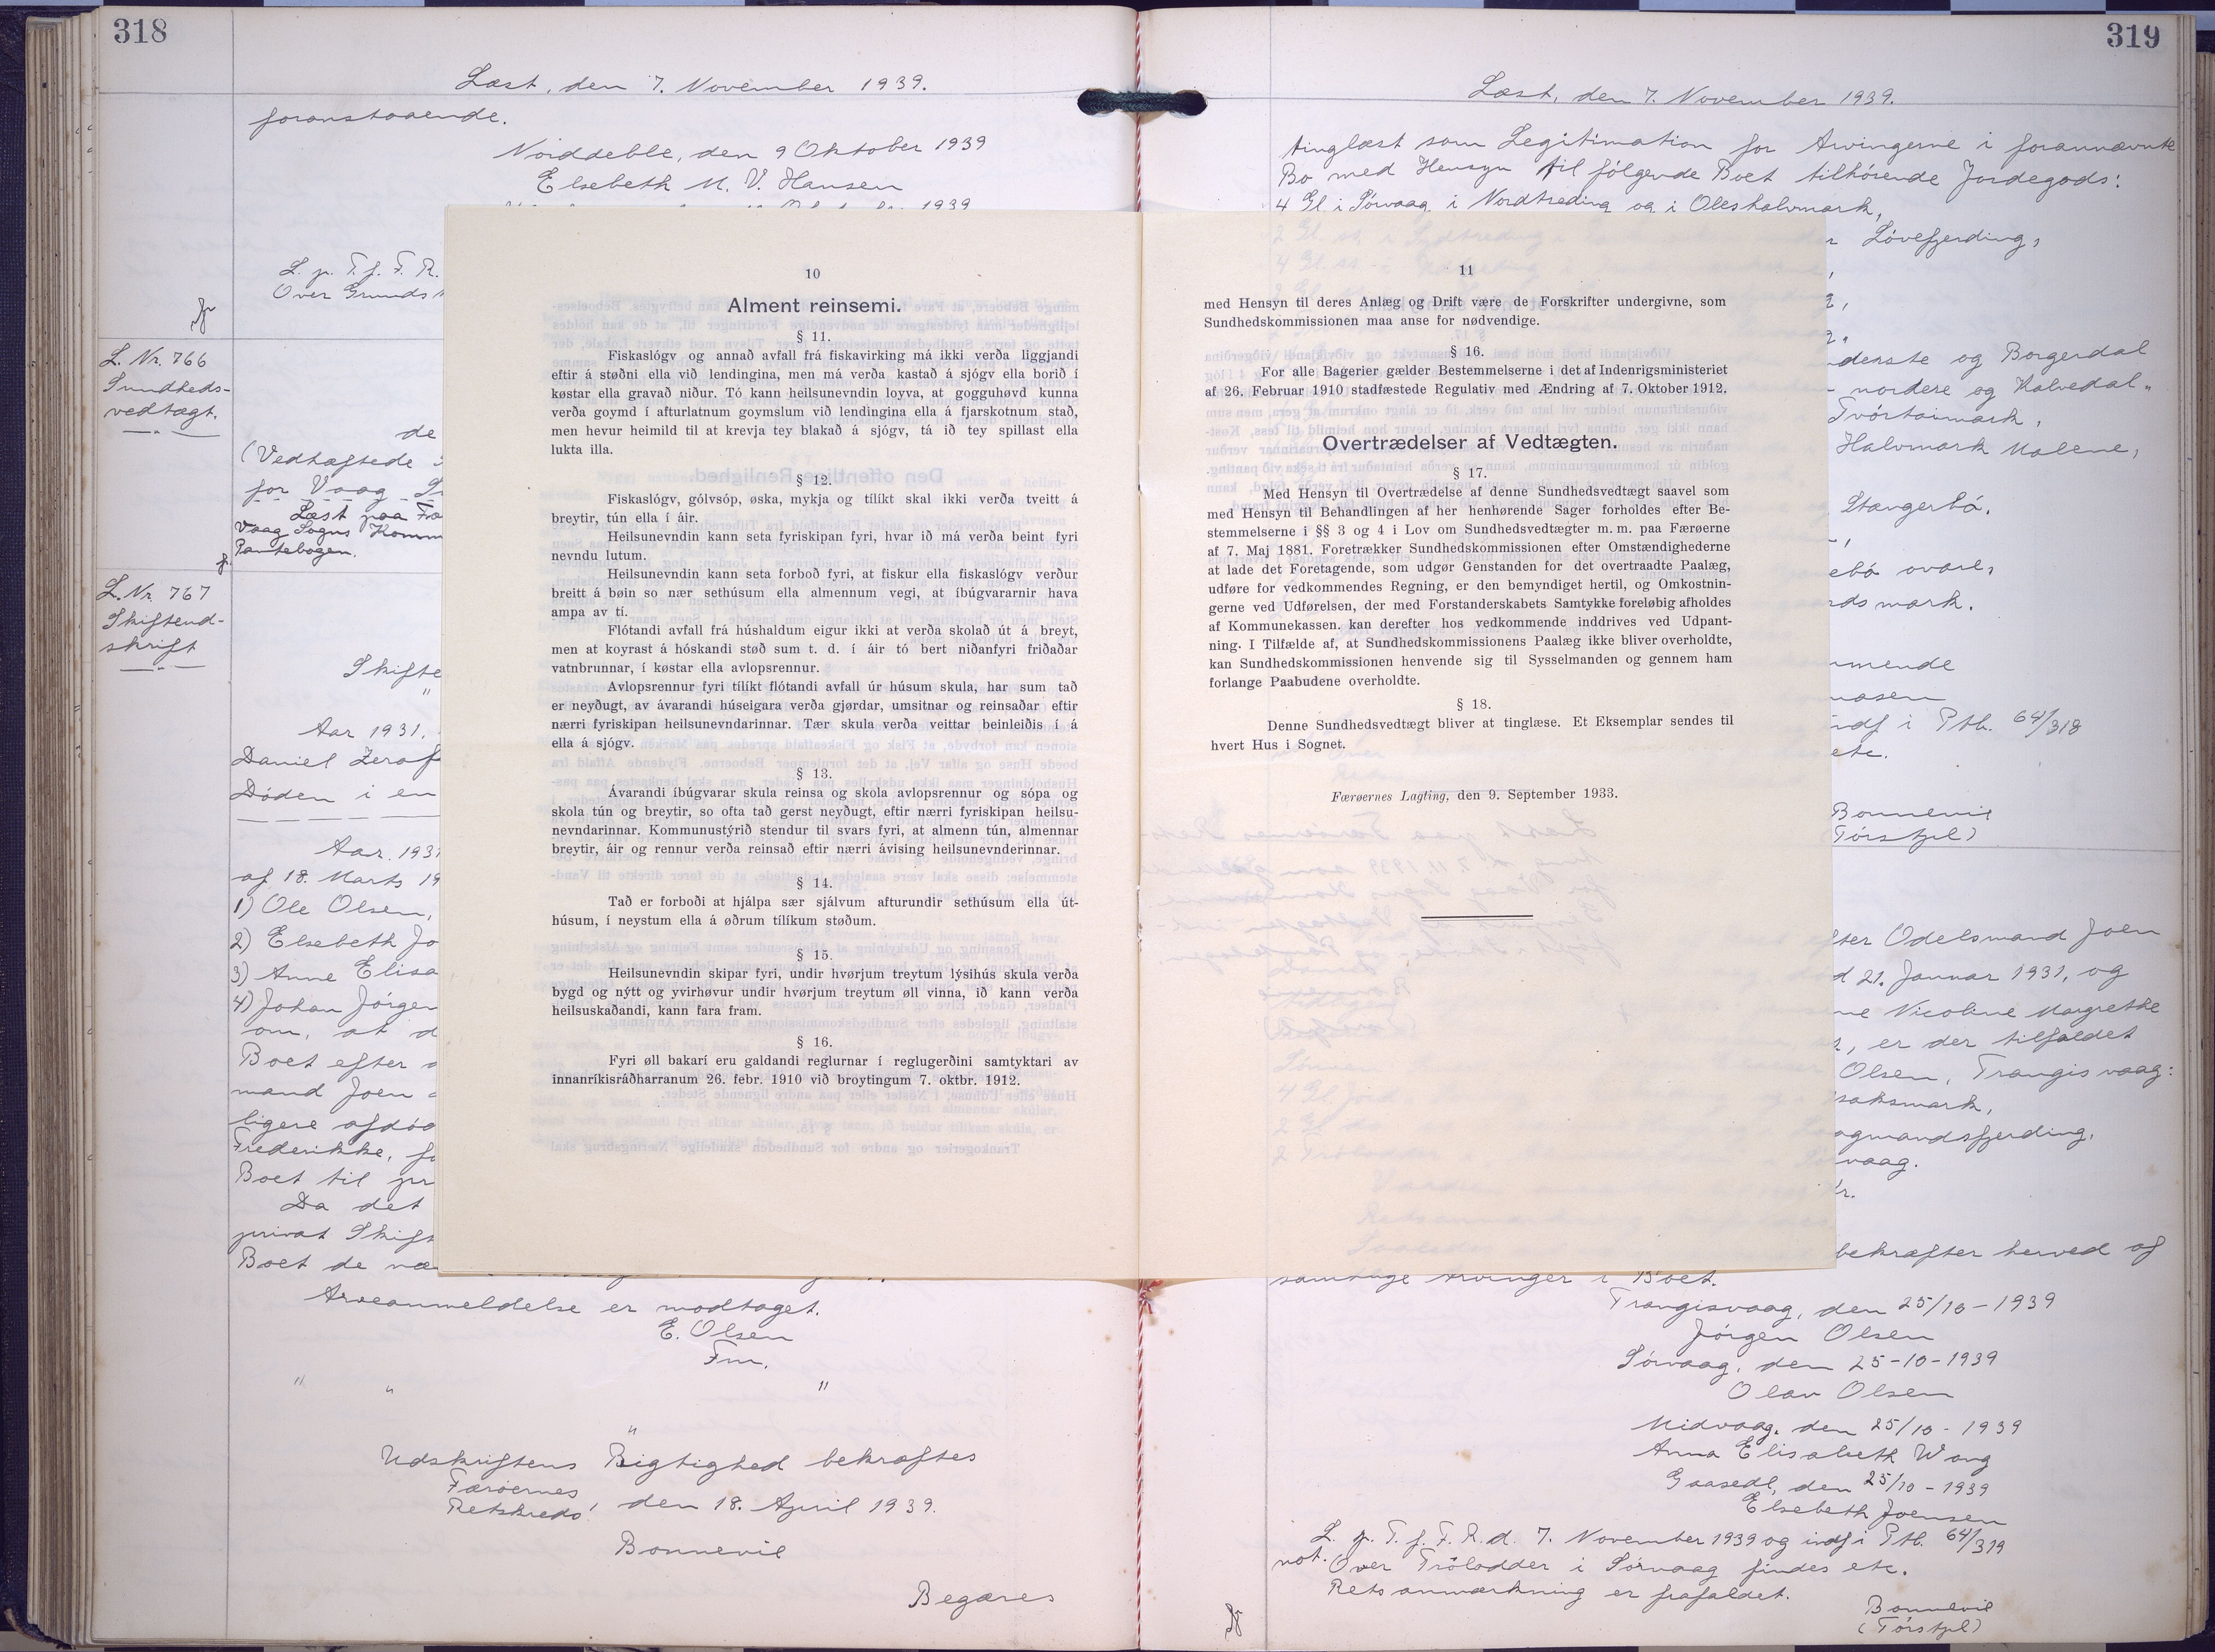 318
Læst, den 7. November 1939.
foranstaaende.
Norddeble, den 9 Oktober 1939
Elsebeth M. V. Hansen
L. p. T. f. F. R.
Over Grunds
L. Nr. 766
Sundheds-
vedtægt.
de
(Vedhæftede
for Vaag
Læst paa Fæ
Vaag Sogns Komm
Pantebogen.
L. Nr. 767
Skifteud-
skrift
Skifte
Aar 1931,
Daniel Zeraf
Døden i en
Aar. 1931
af 18. Marts 19
1) Ole Olsen,
2) Elsebeth Jo
3) Anne Elisa
4) Johan Jørgen
om, at d
Boet efter
mand Joen
ligere afdøde
Frederikke, fo
Boet til pr
Da det
privat Skift
Boet de næ
Arveanmeldelse er modtaget.
E. Olsen
Fm.
Udskriftens Rigtighed bekræftes
Færøernes
Retskreds, den 18. April 1939.
Bonnevie
Begæres
10
Alment reinsemi.
§ 11.
Fiskaslógv og annað avfall frá fiskavirking má ikki verða liggjandi
eftir á støðni ella við lendingina, men má verða kastað á sjógv ella borið í
køstar ella gravað niður. Tó kann heilsunevndin loyva, at gogguhøvd kunna
verða goymd í afturlatnum goymslum við lendingina ella á fjarskotnum stað,
men hevur heimild til at krevja tey blakað á sjógv, tá ið tey spillast ella
lukta illa.
§ 12.
Fiskaslógv, gólvsóp, øska, mykja og tílíkt skal ikki verða tveitt á
breytir, tún ella í áir.
Heilsunevndin kann seta fyriskipan fyri, hvar ið má verða beint fyri
nevndu lutum.
Heilsunevndin kann seta forboð fyri, at fiskur ella fiskaslógv verður
breitt á bøin so nær sethúsum ella almennum vegi, at íbúgvararnir hava
ampa av tí.
Flótandi avfall frá húshaldum eigur ikki at verða skolað út á breyt,
men at koyrast á hóskandi støð sum t. d. í áir tó bert niðanfyri friðaðar
vatnbrunnar, í køstar ella avlopsrennur.
Avlopsrennur fyri tílíkt flótandi avfall úr húsum skula, har sum tað
er neyðugt, av ávarandi húseigara verða gjørdar, umsitnar og reinsaðar eftir
nærri fyriskipan heilsunevndarinnar. Tær skula verða veittar beinleiðis í á
ella á sjógv.
§ 13.
Ávarandi íbúgvarar skula reinsa og skola avlopsrennur og sópa og
skola tún og breytir, so ofta tað gerst neyðugt, eftir nærri fyriskipan heilsu-
nevndarinnar. Kommunustýrið stendur til svars fyri, at almenn tún, almennar
breytir, áir og rennur verða reinsað eftir nærri ávising heilsunevnderinnar.
§ 14.
Tað er forboði at hjálpa sær sjálvum afturundir sethúsum ella út-
húsum, í neystum ella á øðrum tílíkum støðum.
§ 15.
Heilsunevndin skipar fyri, undir hvørjum treytum lýsihús skula verða
bygd og nýtt og yvirhøvur undir hvørjum treytum øll vinna, ið kann verða
heilsuskaðandi, kann fara fram.
§ 16.
Fyri øll bakarí eru galdandi reglurnar í reglugerðini samtyktari av
innanríkisráðharranum 26. febr. 1910 við broytingum 7. oktbr. 1912.
319
Læst, den 7. November 1939.
tinglæst som Legitimation for Arvingerne i forannævnte
Bo med Hensyn til følgende Boet tilhørende Jordegods:
4 Gl. i Sørvaag i Nordtreding og i Oleshalvmark,
Løvefjerding,
11
med Hensyn til deres Anlæg og Drift være de Forskrifter undergivne, som
Sundhedskommissionen maa anse for nødvendige.
§ 16.
For alle Bagerier gælder Bestemmelserne i det af Indenrigsministeriet
af 26. Februar 1910 stadfæstede Regulativ med Ændring af 7. Oktober 1912.
Overtrædelser af Vedtægten.
§ 17.
Med Hensyn til Overtrædelse af denne Sundhedsvedtægt saavel som
med Hensyn til Behandlingen af her henhørende Sager forholdes efter Be-
stemmelserne i §§ 3 og 4 i Lov om Sundhedsvedtægter m. m. paa Færøerne
af 7. Maj 1881. Foretrækker Sundhedskommissionen efter Omstændighederne
at lade det Foretagende, som udgør Genstanden for det overtraadte Paalæg,
udføre for vedkommendes Regning, er den bemyndiget hertil, og Omkostnin-
gerne ved Udførelsen, der med Forstanderskabets Samtykke foreløbig afholdes
af Kommunekassen. kan derefter hos vedkommende inddrives ved Udpant-
ning. I Tilfælde af, at Sundhedskommissionens Paalæg ikke bliver overholdte,
kan Sundhedskommissionen henvende sig til Sysselmanden og gennem ham
forlange Paabudene overholdte.
§ 18.
Denne Sundhedsvedtægt bliver at tinglæse. Et Eksemplar sendes til
hvert Hus i Sognet.
Færøernes Lagting, den 9. September 1933.
denste og Borgerdal
nordere og Halvedal"
Tvørtoimark,
Halvmark Malene,
Stangerbø.
ebø ovare,
ds mark.
mmende
masen
indf i Ptb. 64/318
etc.
Bonnevie
(Tórstjl)
fter Odelsmand Joen
d 21. Januar 1931, og
ne Nicoline Margrethe
, er der tilfaldet
Olsen, Trangisvaag:
saksmark,
ogmandsfjerding,
vaag.
Kr.
bekræfter herved af
samtlige Arvinger i Boet.
Trangisvaag, den 25/10-1939
Jørgen Olsen
Sørvaag, den 25-10-1939
Olav Olsen
Midvaag, den 25/10-1939
Anna Elisabeth Wang
Gaasedl, den 25/10-1939
Elsebeth Joensen
L. p. T. f. F. R. d. 7. November 1939 og indf i Ptb. 64/319
not. Over Trølodder i Sørvaag findes etc.
Retsanmærkning er frafaldet.
Bonnevie
(Tórstjl)